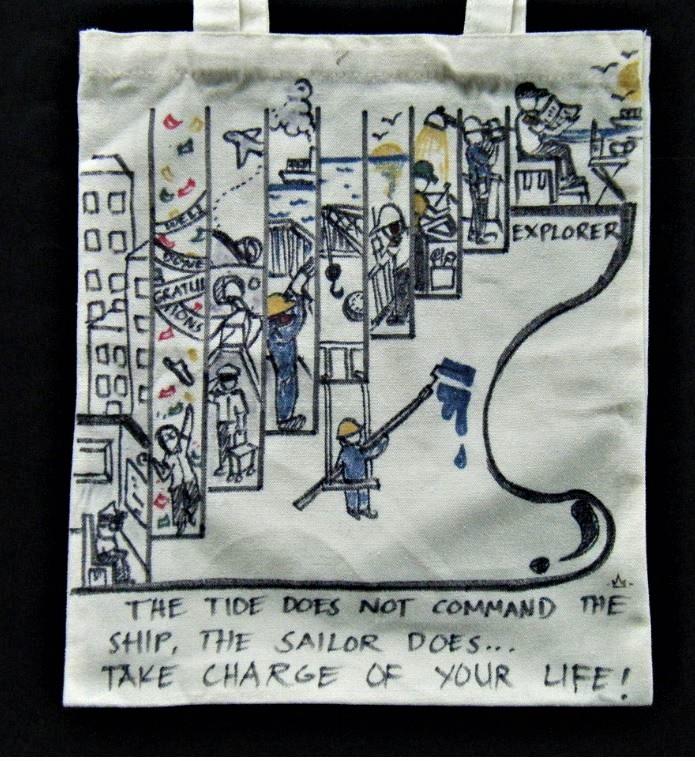 WELL
DONE
GRATUL
TIONS
EXPLORER
THE TIDE DOES NOT COMMAND THE
SHIP, THE SAILOR DOES...
TAKE CHARGE OF YOUR LIFE!